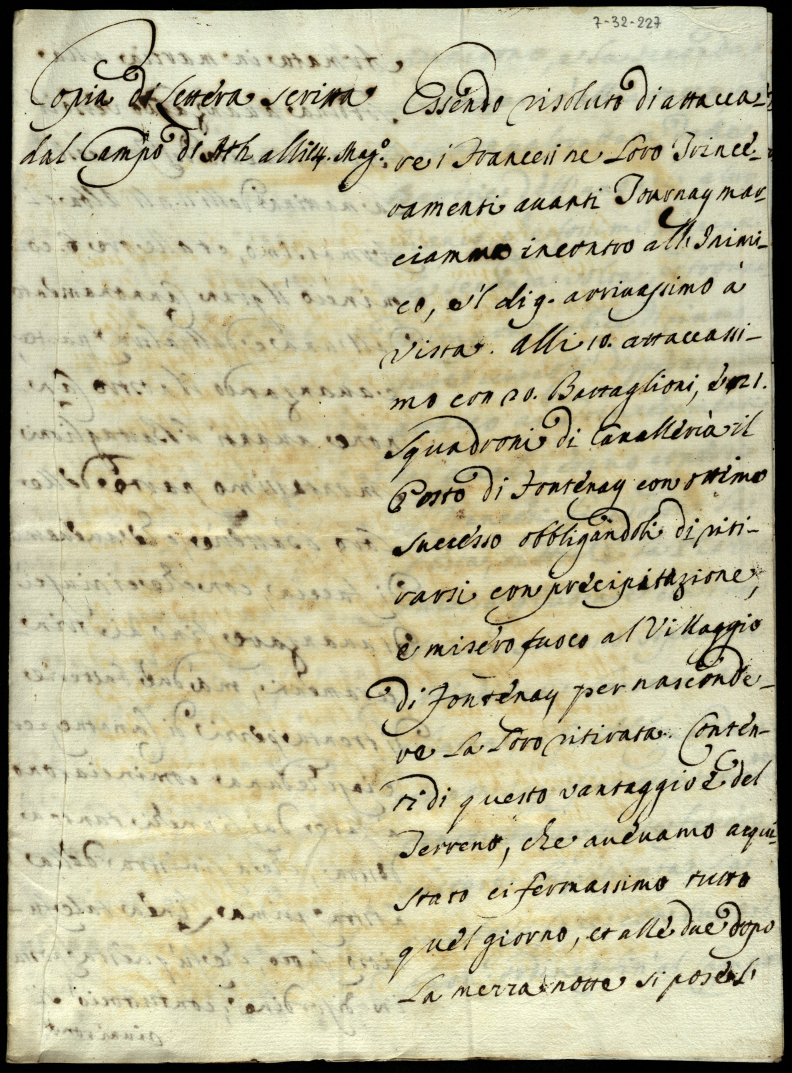 7-32-227
Copia di Lettera scritta
dal Campo di Ath alli 14. Magº.
Essendo risoluto di attacca-
re i Francesi ne Loro Trince-
ramenti avanti Tournay mar-
ciammo incontro all' Inimi-
co, e'l di 9. arrivassimo à
vista. Alli 10. attaccassi-
mo con 20. Battaglioni, è 21.
Squadroni di Cavalleria il
Posto di Fontenay con ottimo
successo obbligandoli di riti-
rarsi con precipitazione,
e misero fuoco al Villaggio
di Fontenay per nasconde-
re La Loro ritirata. Conten-
ti di questo vantaggio è del
Terreno, che avevamo acqui-
stato ci fermassimo tutto
quel giorno, et alle due dopo
La mezza notte si pose L'